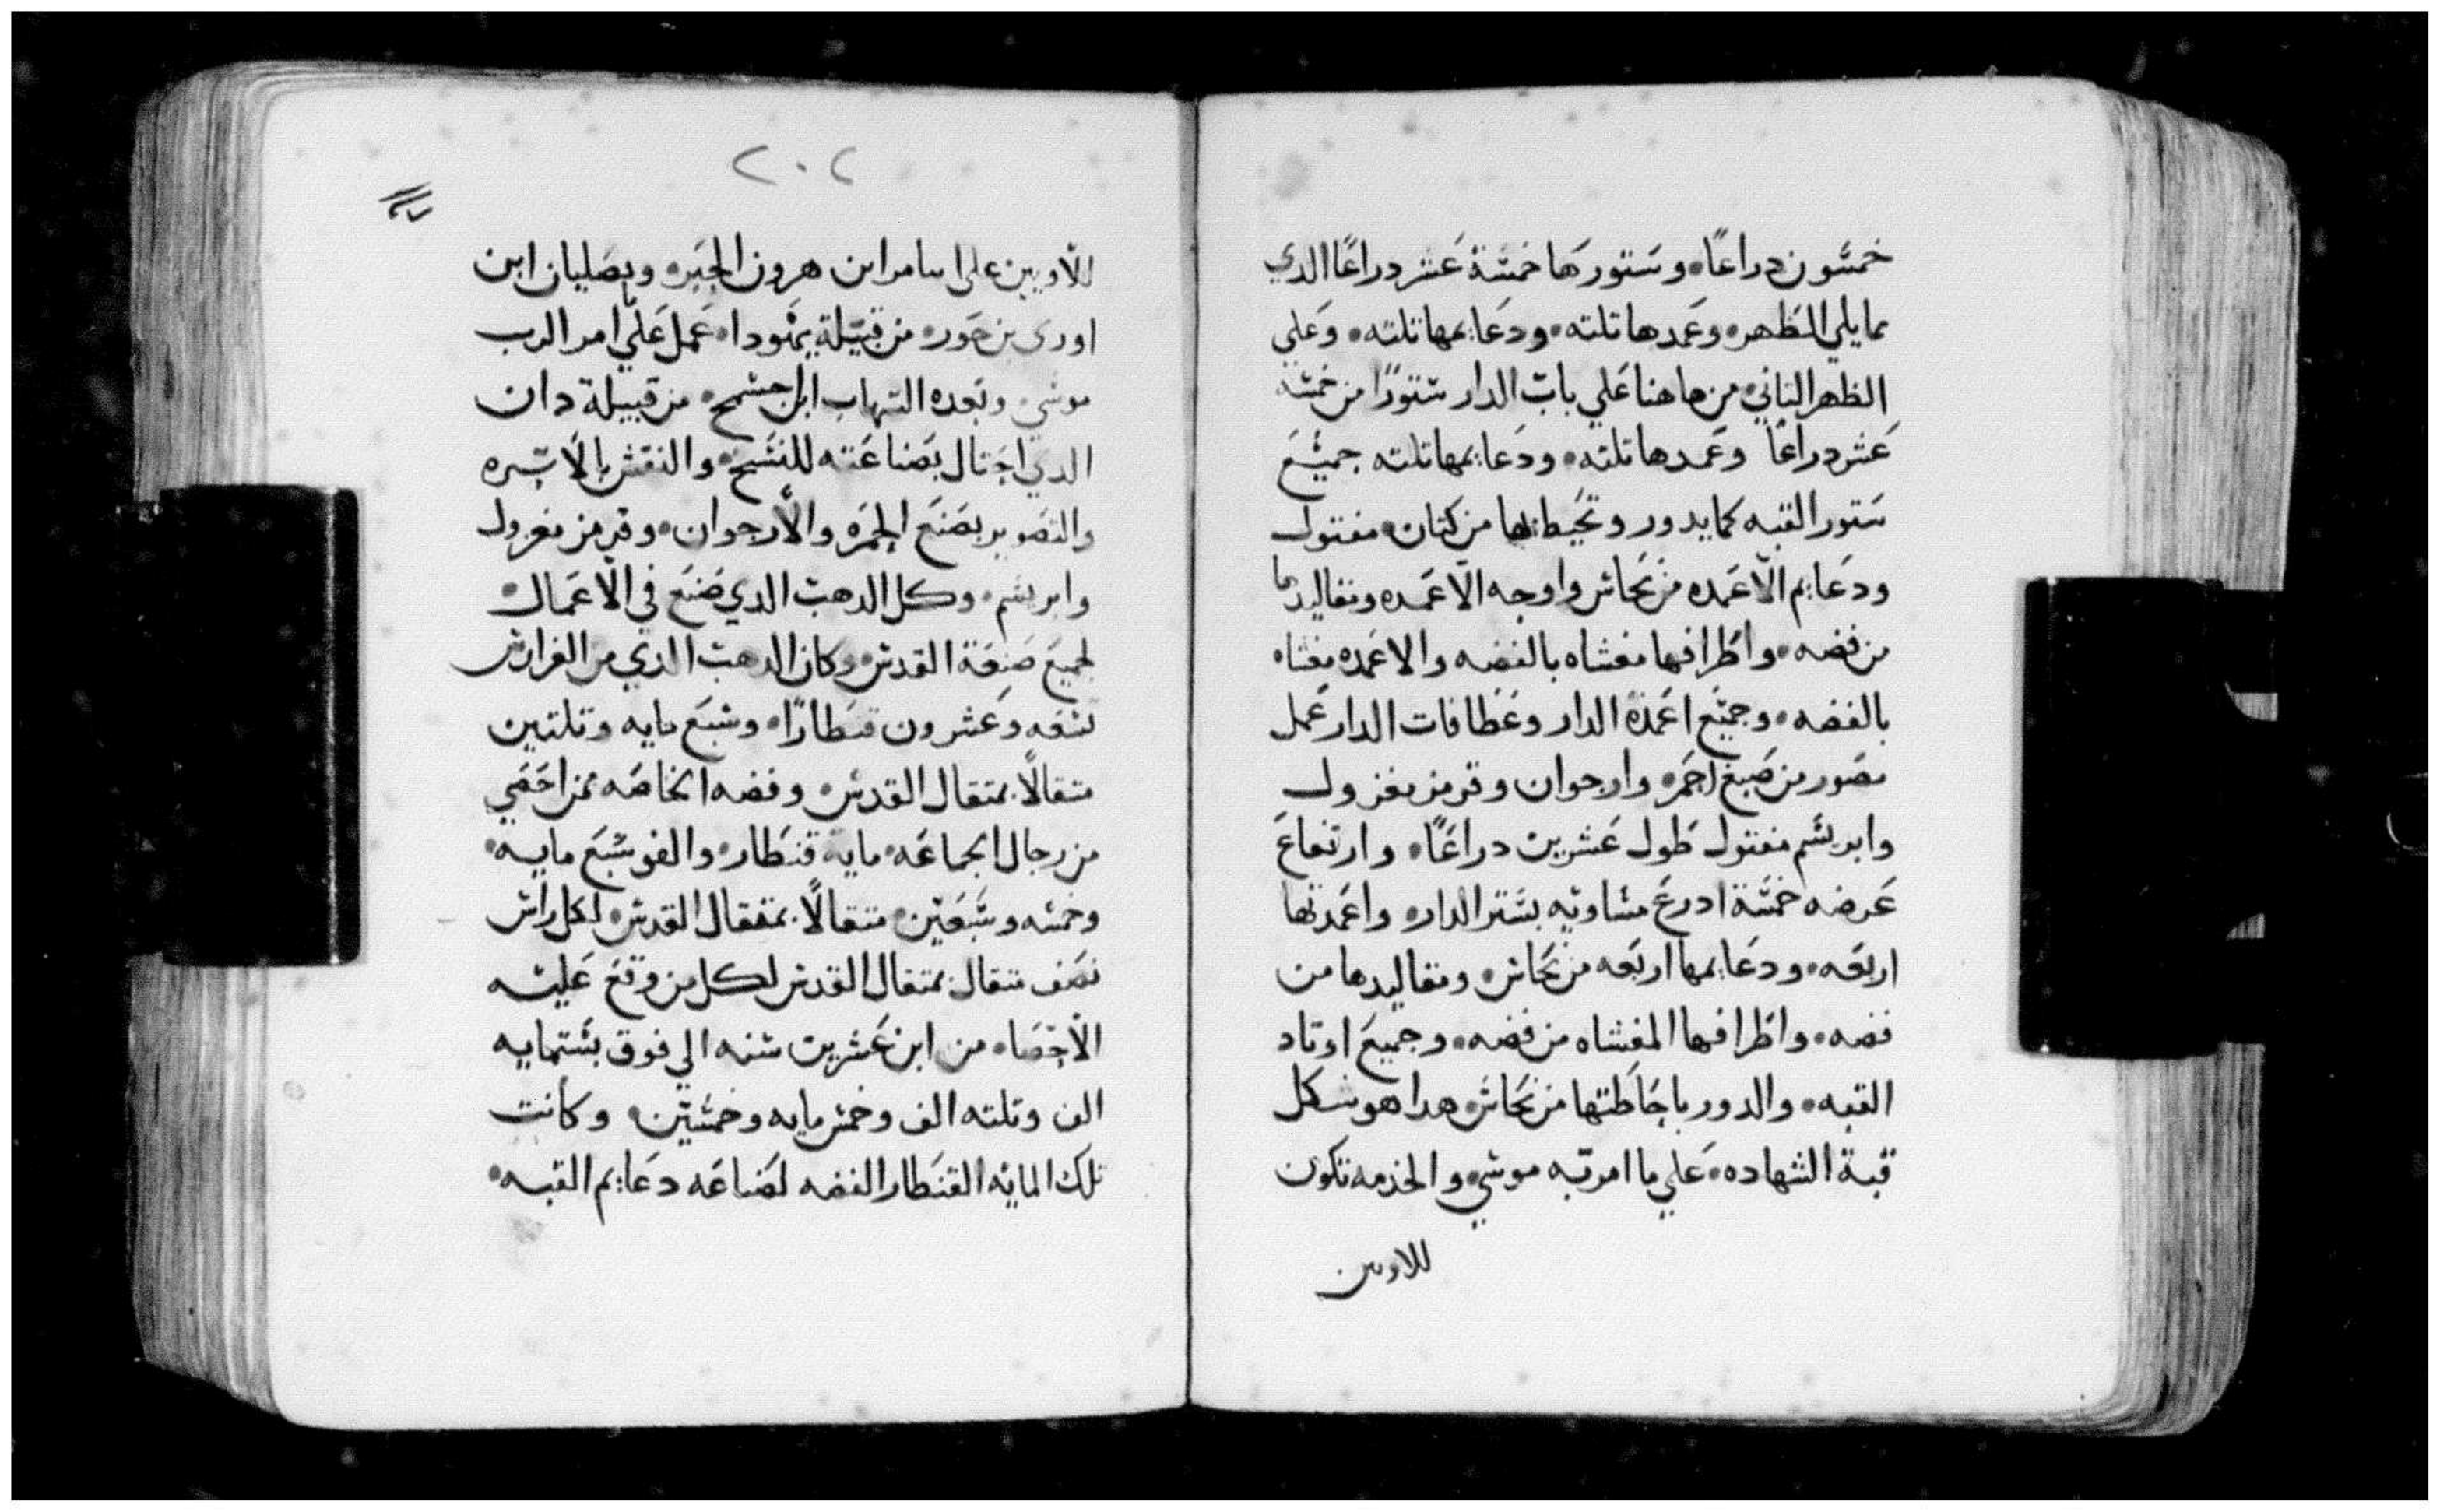 خمسون دراعًا • وستورها خمسة عشر دراعًا الدي
مما يلي الظهر • وعمدها تلته • ودعايمها تلته • وعلي
الظهر التاني • من هاهنا علي باب الدار ستورًا من خمسة
عشر دراعًا وعمدها تلته • ودعايمها تلته جميع
ستور القبه كما يدور وتحيط بها من كتان • مفتول
ودعايم الأعمده من نحاس واوجه الأعمده ومقاليدها
من فضه • واطرافها مغشاه بالفضه والاعمده مغشاه
بالفضه • وجميع اعمدة الدار وعطافات الدار عمل
مصور من صبغ احمر • وارجوان وقرمز مغزول
وابريسم مفتول طول عشرين دراعًا • وارتفاع
عرضه خمسة ادرع مساويه بستر الدار • واعمدتها
اربعه • ودعايمها اربعه من نحاس • ومقاليدها من
فضه • واطرافها المغشاه من فضه • وجميع اوتاد
القبه • والدور باحاطتها من نحاس • هدا هو شكل
قبة الشهاده • علي ما امر به موسي • والخدمه تكون
للاويين
٢٠٢
للأويين علي ايامر ابن هرون الحبر • وبصليان ابن
اوري بن حور • من قبيلة يهودا • عمل علي ما امر الرب
موسي • وبعده التهاب ابن اجشمح • من قبيلة دان
الدي احتال بصناعته للنسج • والنقش بالأبره
والتصوير بصنع الحمره والأرجوان • وقرمز مغزول
وابريسم • وكل الدهب الدي صنع في الأعمال •
لجميع صنعة القدس • وكان الدهب الدي من الفرارس
تسعه وعشرون قنطارًا • وسبع مايه وتلتين
متقالًا بمتقال القدس • وفضه الخاصه ممن احصي
من رجال الجماعه • مايه قنطار • والف وسبع مايه •
وخمسه وسبعين • متقالًا بمتقال القدس • لكل راس
نصف متقال بمتقال القدس لكل من وقع عليه
الأحصاء من ابن عشرين سنه الي فوق بستمايه
الف وتلته الف وخمس مايه وخمسين • وكانت
تلك المايه القنطار الفضه لصناعه دعايم القبه •